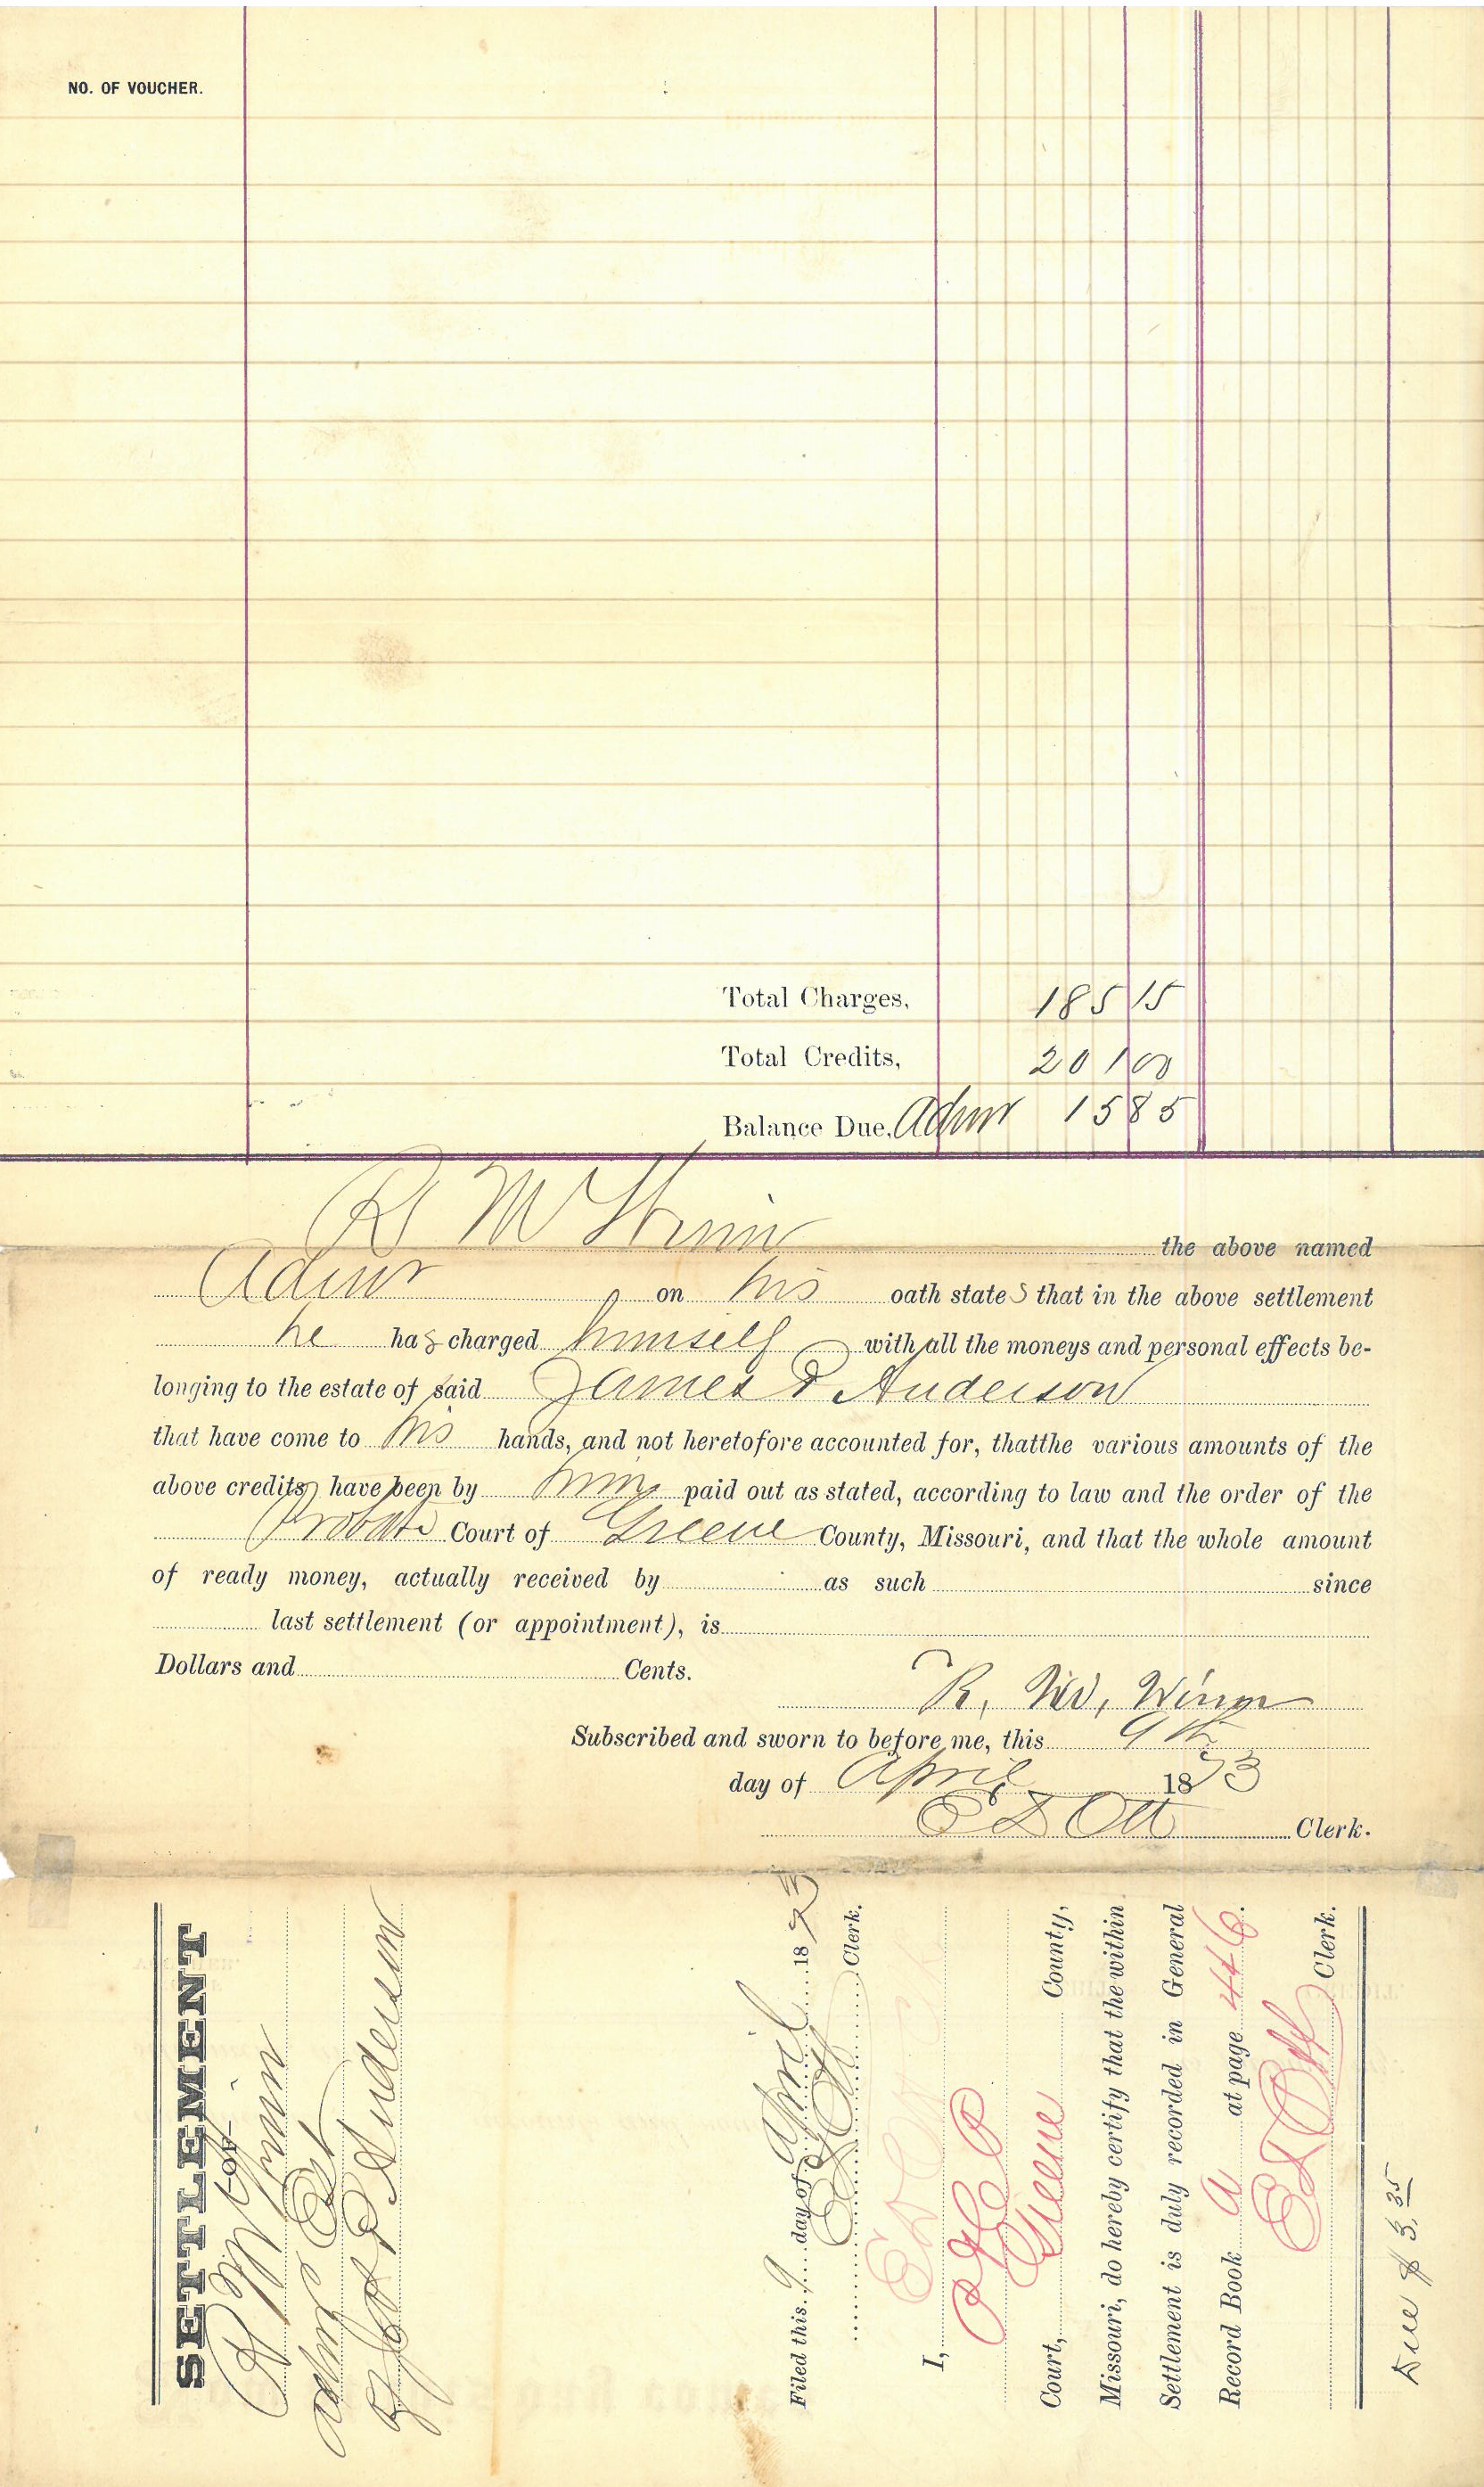 NO. OF VOUCHER.
Total Charges, 185 15
Total Credits, 201 00
Balance Due, Admr 15 85
R M the above named
Admr on his oath states that in the above settlement
he has charged himself with all the moneys and personal effects be-
longing to the estate of said James P Anderson
that have come to his hands, and not heretofore accounted for, thatthe various amounts of the
above credits have been by him paid out as stated, according to law and the order of the
Probate Court of Greene County, Missouri, and that the whole amount
of ready money, actually received by as such since
last settlement (or appointment), is
Dollars and Cents.
R. M. Winn
Subscribed and sworn to before me, this 9th
day of April 1873
E D Ott Clerk.
SETTLEMENT
—OF—
R M Winn
admr Est
of Jas P Anderson
Filed this 9 day of April 1873
E D Ott Clerk.
I,
Court, Greene County,
Missouri, do hereby certify that the within
Settlement is duly recorded in General
Record Book A at page 446.
E D Ott Clerk.
Due $3.35